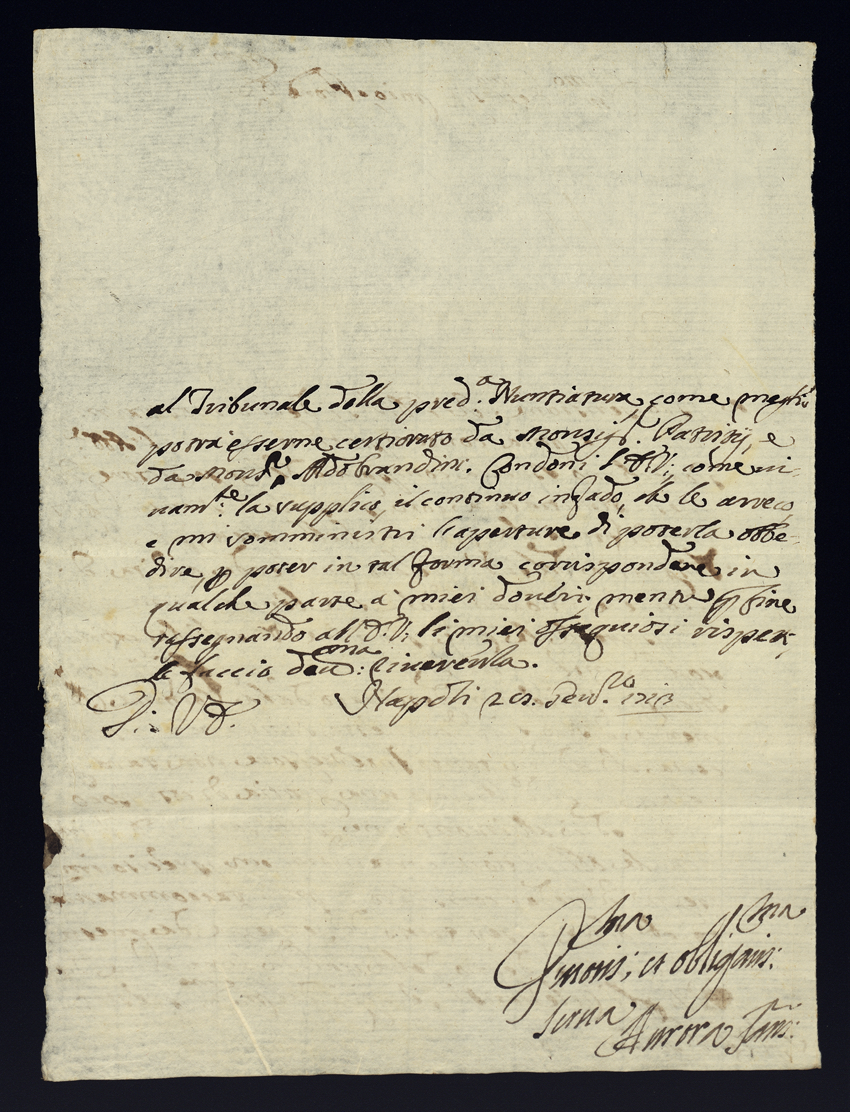 al Tribunale della pred.a Nuntiatura come meglio
potrà esserne certiorato da Monsig.r Patritij, e
da Mons.r Aldobrandini. Condoni l'A.V.; come vi-
vam.te la supplico, il continuo infado, ch le arreco,
e mi somministri l'aperture di poterla obbe-
dire, p poter in tal forma corrispondere in
qualche parte a' miei doveri mentre p fine
rassegnando all' V: li miei ossequiosi rispetti,
le faccio riverenza.
Di V.A. Napoli Gen.ro 1713
et oblig:ma
Serva
Aurora San: